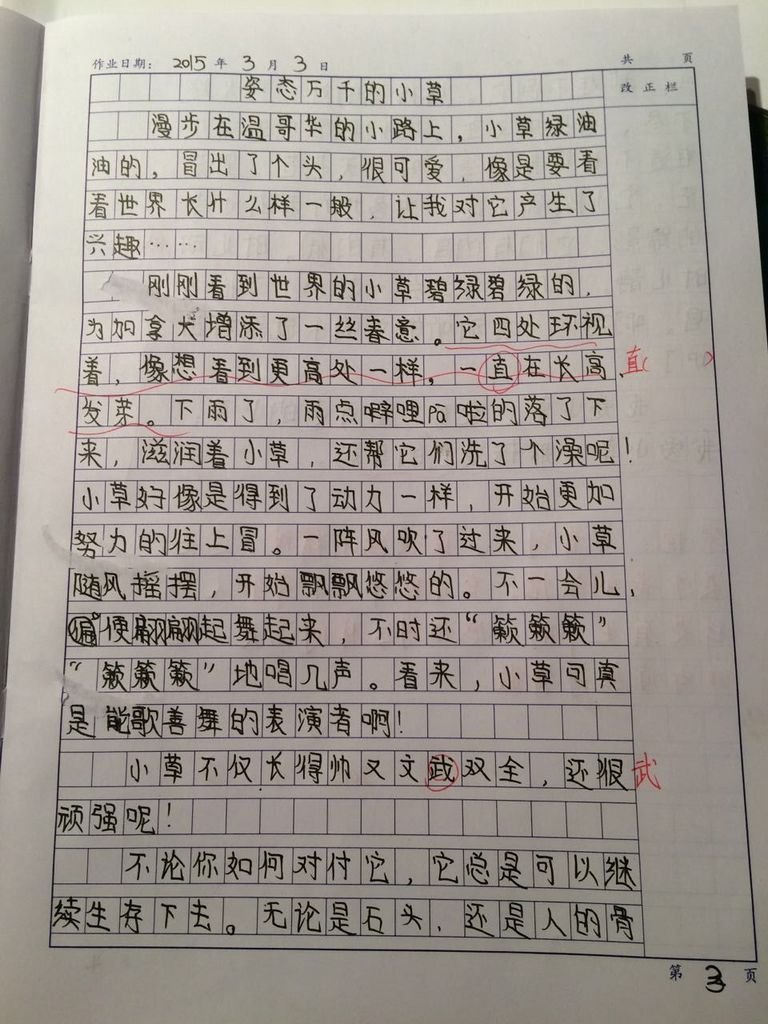 作业日期： 2015 年 3 月 3 日 共 页
改正栏
姿态万千的小草
漫步在温哥华的小路上，小草绿油
油的，冒出了个头，很可爱，像是要看
看世界长什么样一般，让我对它产生了
兴趣……
刚刚看到世界的小草碧绿碧绿的，
为加拿大增添了一丝春意。它四处环视
着，像想看到更高处一样，一直在长高、 直( )
发芽。下雨了，雨点噼哩pā啦的落了下
来，滋润着小草，还帮它们洗了个澡呢！
小草好像是得到了动力一样，开始更加
努力的往上冒。一阵风吹了过来，小草
随风摇摆，开始飘飘悠悠的。不一会儿，
便翩翩起舞起来，不时还“簌簌簌”
“簌簌簌”地唱几声。看来，小草可真
是能歌善舞的表演者啊！
小草不仅长得帅又文武双全，还很 武
顽强呢！
不论你如何对付它，它总是可以继
续生存下去。无论是石头，还是人的骨
第 3 页